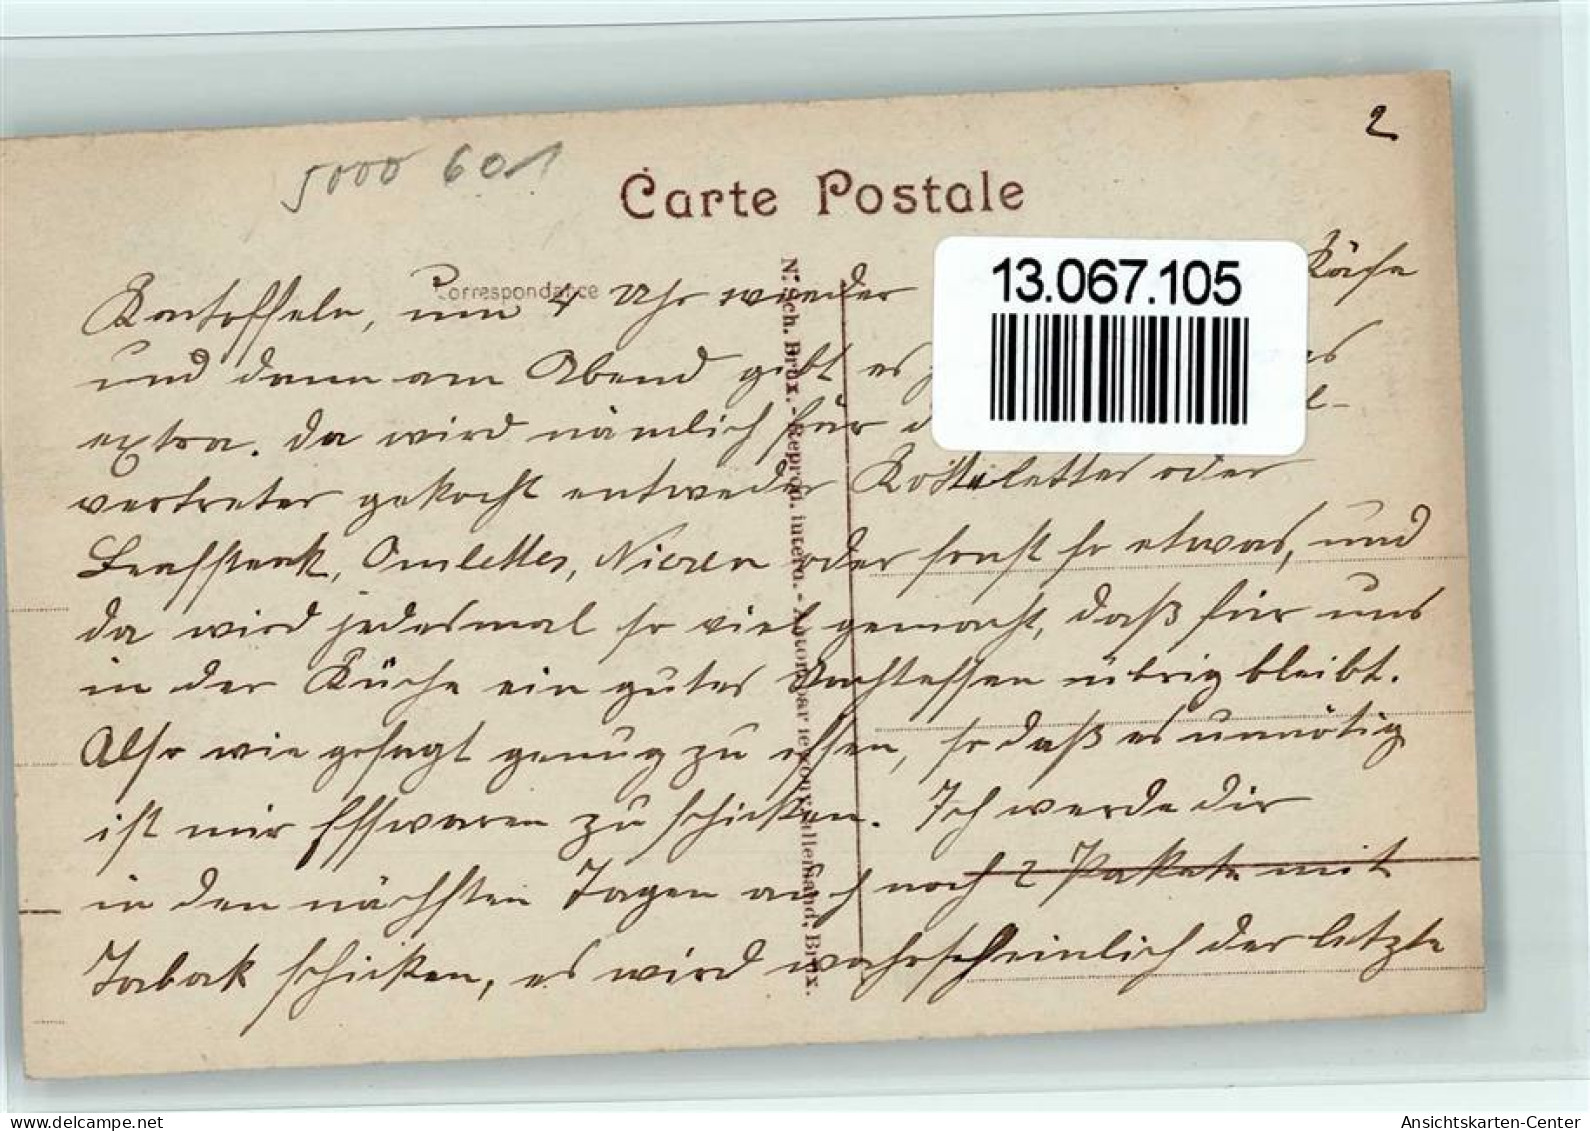 2
5000 601
Carte Postale
Correspondance
13.067.105
Kartoffeln, um 4 Uhr wieder Käse
und dann am Abend gibt es
extra. Da wird nämlich für
vertreter gekocht entweder Kottelettes oder
Beafsteak, Omlettes, Nieren oder sonst so etwas, und
da wird jedesmal so viel gemacht, daß für uns
in der Küche ein gutes Nachtessen übrig bleibt.
Also wie gesagt genug zu essen, so daß es unnötig
ist mir Esswaren zu schicken. Ich werde dir
in den nächsten Tagen auch noch 2 Pakete mit
Tabak schicken, es wird wahrscheinlich der letzte
N. Sch. Brux. - Reprod. interd. - Autor. par le gouv. allemand, Brux.
delcampe.net
Ansichtskarten-Center